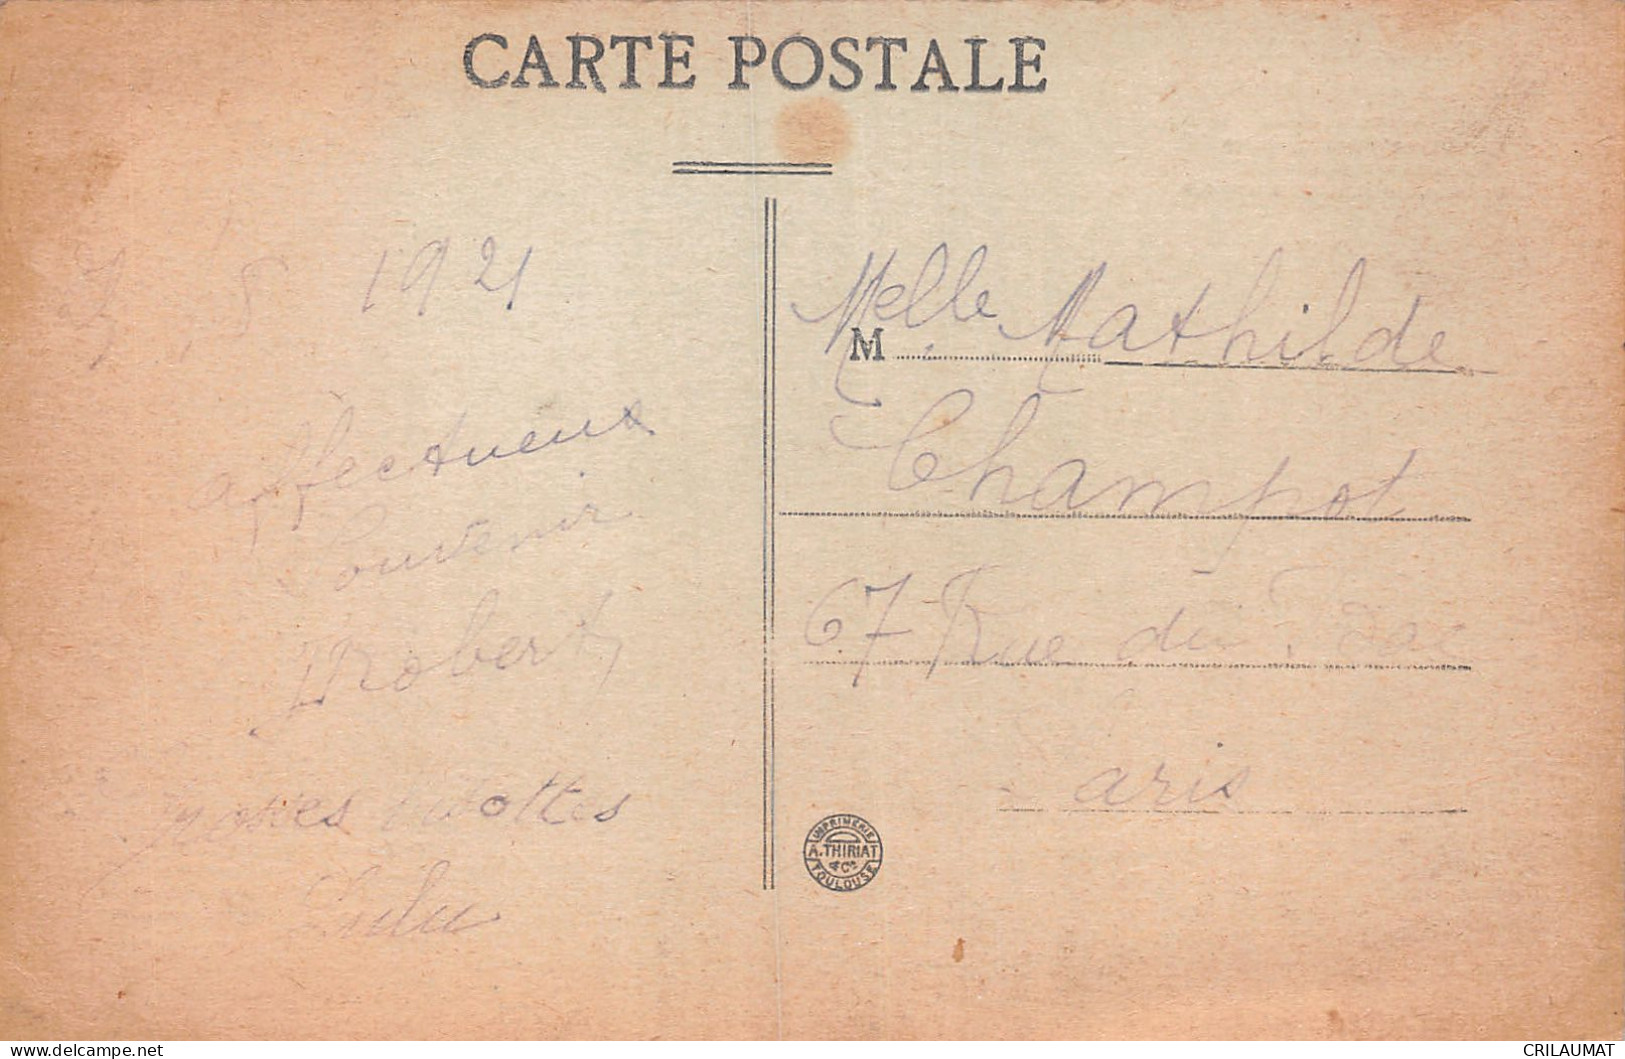 CARTE POSTALE
8 1921
affectueux
Souvenir
Robert
Lulu
Melle Mathilde
M
Champot
67 Rue du
aris
IMPRIMERIE
A. THIRIAT
& Cie
TOULOUSE
CRILAUMAT